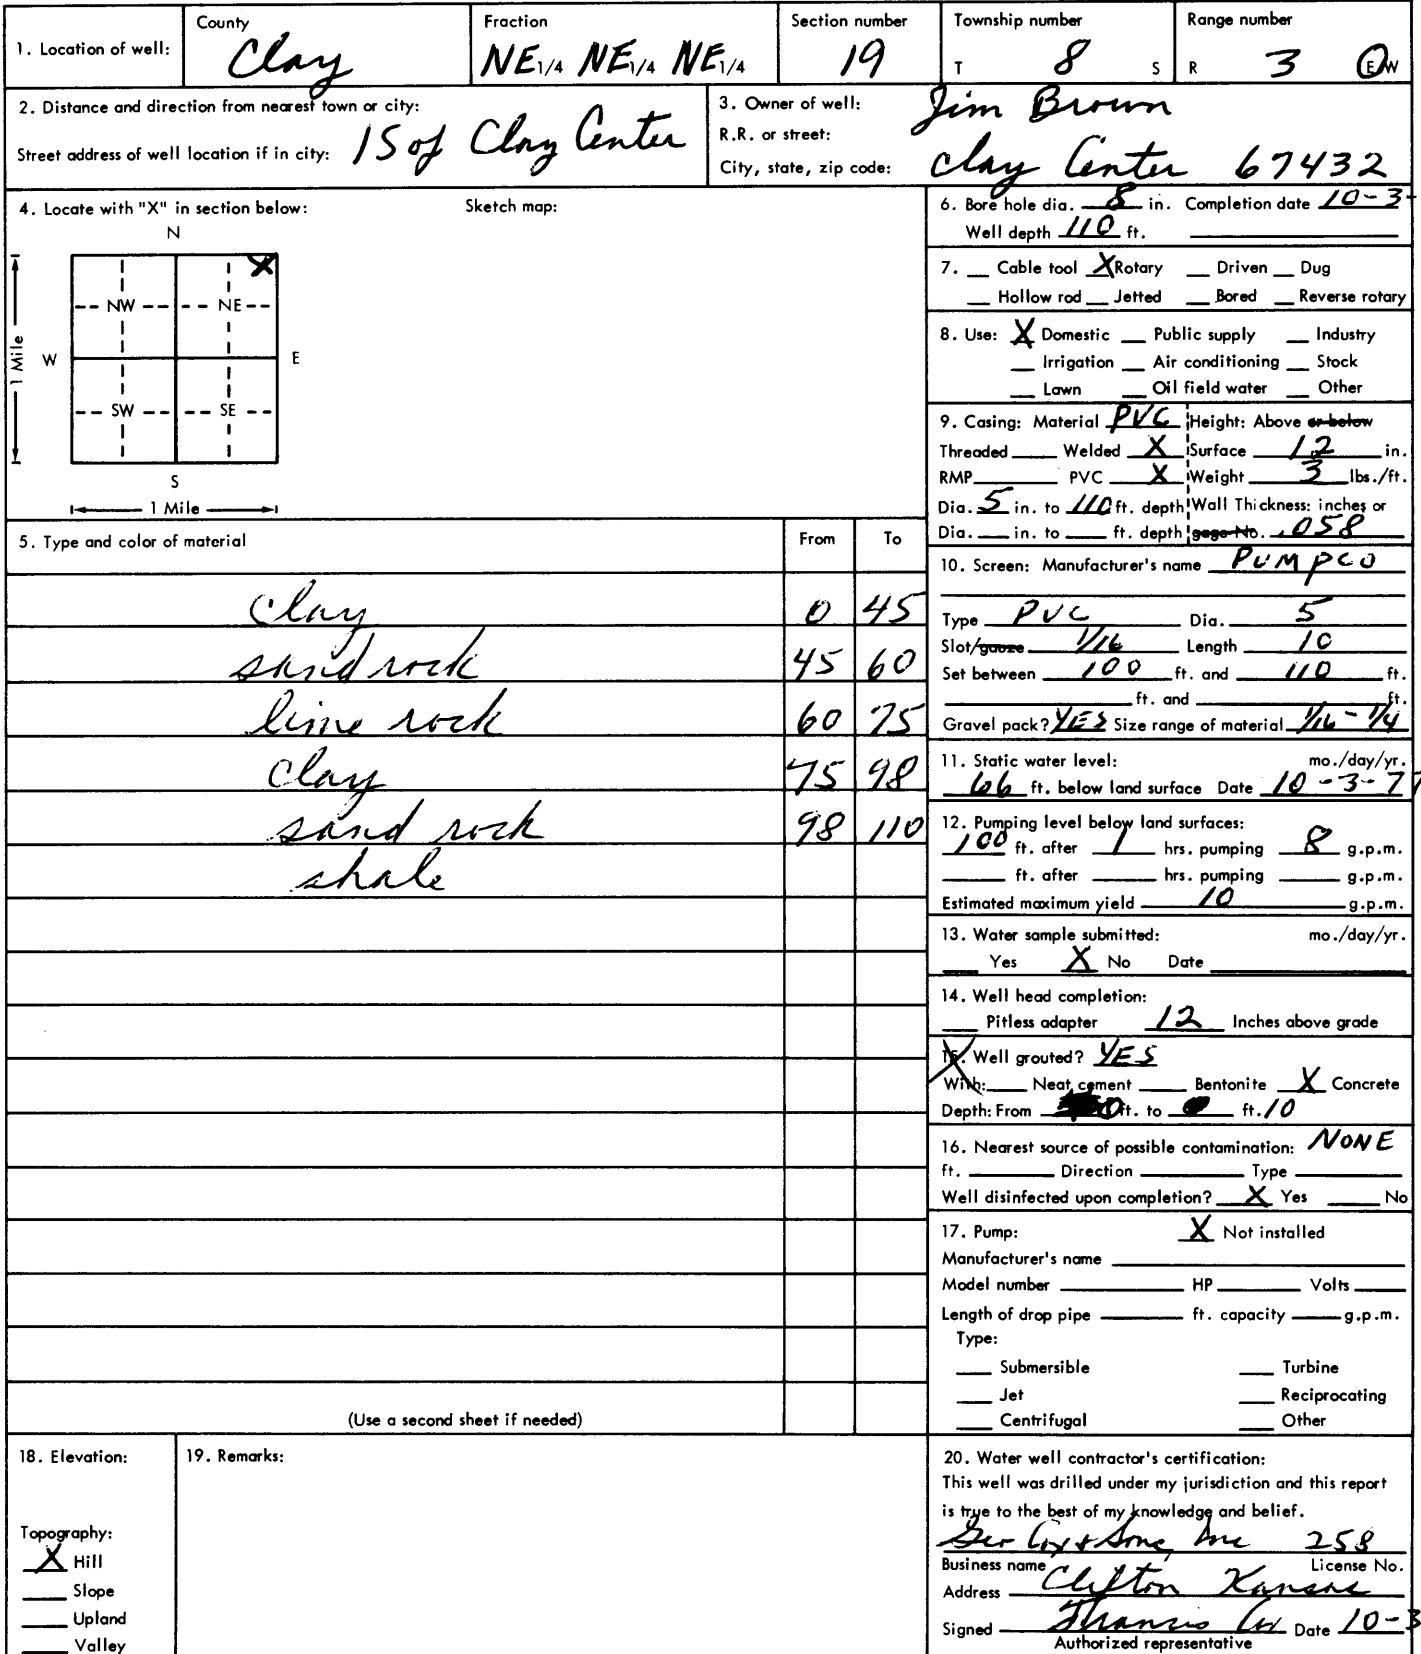 1. Location of well: County Clay Fraction NE1/4 NE1/4 NE1/4 Section number 19 Township number T 8 S Range number R 3 E/W
2. Distance and direction from nearest town or city: 1 S of Clay Center
Street address of well location if in city:
3. Owner of well: Jim Brown
R.R. or street:
City, state, zip code: Clay Center 67432
4. Locate with "X" in section below: Sketch map:
N
X
NW NE
1 Mile W E
SW SE
S
1 Mile
5. Type and color of material From To
Clay 0 45
sand rock 45 60
lime rock 60 75
Clay 75 98
sand rock 98 110
shale
(Use a second sheet if needed)
6. Bore hole dia. 8 in. Completion date 10-3-
Well depth 110 ft.
7. Cable tool X Rotary Driven Dug
Hollow rod Jetted Bored Reverse rotary
8. Use: X Domestic Public supply Industry
Irrigation Air conditioning Stock
Lawn Oil field water Other
9. Casing: Material PVC Height: Above or below
Threaded Welded X Surface 12 in.
RMP PVC X Weight 3 lbs./ft.
Dia. 5 in. to 110 ft. depth Wall Thickness: inches or
Dia. in. to ft. depth gage No. .058
10. Screen: Manufacturer's name PUMPCO
Type PVC Dia. 5
Slot/gauze 1/16 Length 10
Set between 100 ft. and 110 ft.
ft. and ft.
Gravel pack? YES Size range of material 1/16 - 1/4
11. Static water level: mo./day/yr.
66 ft. below land surface Date 10-3-77
12. Pumping level below land surfaces:
100 ft. after 1 hrs. pumping 8 g.p.m.
ft. after hrs. pumping g.p.m.
Estimated maximum yield 10 g.p.m.
13. Water sample submitted: mo./day/yr.
Yes X No Date
14. Well head completion:
Pitless adapter 12 Inches above grade
15. Well grouted? YES
With: Neat cement Bentonite X Concrete
Depth: From 0 ft. to ft. 10
16. Nearest source of possible contamination: NONE
ft. Direction Type
Well disinfected upon completion? X Yes No
17. Pump: X Not installed
Manufacturer's name
Model number HP Volts
Length of drop pipe ft. capacity g.p.m.
Type:
Submersible Turbine
Jet Reciprocating
Centrifugal Other
18. Elevation:
Topography:
X Hill
Slope
Upland
Valley
19. Remarks:
20. Water well contractor's certification:
This well was drilled under my jurisdiction and this report
is true to the best of my knowledge and belief.
Geo Cox & Sons Inc 258
Business name License No.
Address Clifton Kansas
Signed Francis Cox Date 10-3
Authorized representative